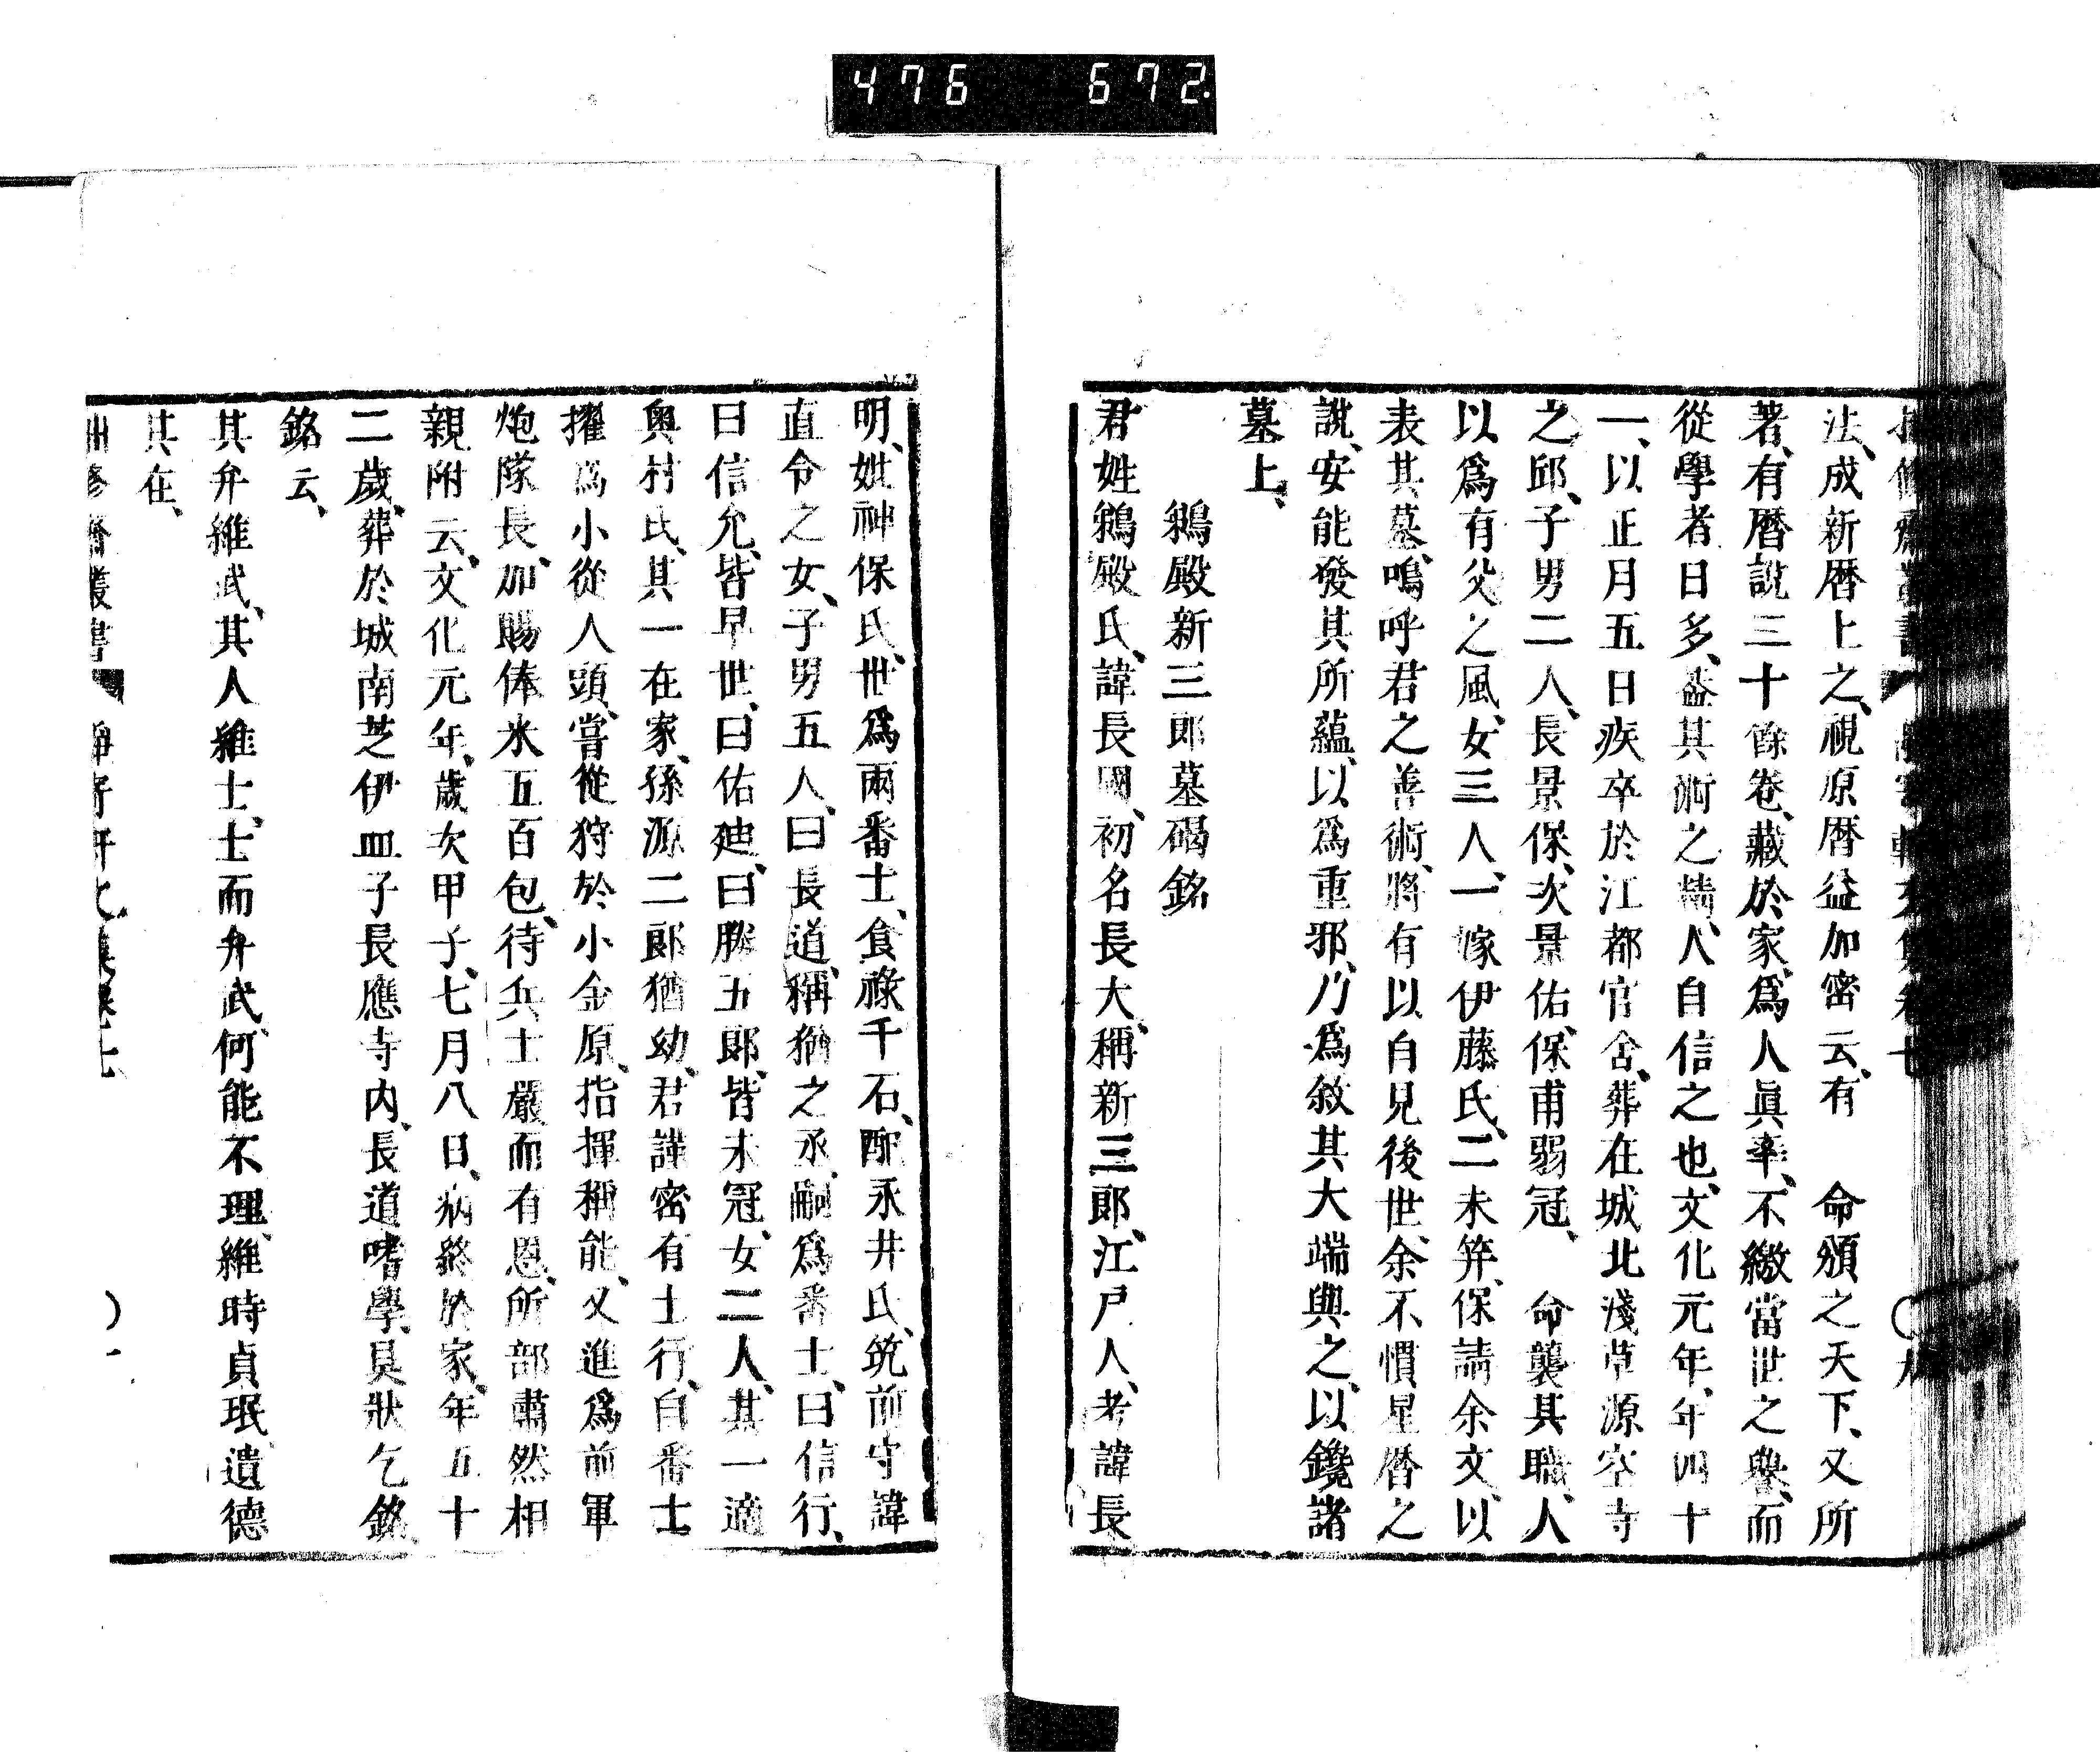 476 672.
法、成新暦上之、視原暦益加密云、有　命頒之天下、又所
著、有暦說三十餘卷、藏於家、爲人眞率、不繳當世之譽、而
從學者日多、盖其術之精、人自信之也、文化元年、年四十
一、以正月五日疾卒於江都官舍、葬在城北淺草源空寺
之邱、子男二人、長景保、次景佑、保甫弱冠、　命襲其職、人
以爲有父之風、女三人、一嫁伊藤氏、二未笄、保請余文、以
表其墓、嗚呼君之善術、將有以自見後世、余不慣星暦之
說、安能發其所蘊、以爲重邪、乃爲敘其大端與之、以鑱諸
墓上、
鵜殿新三郎墓碣銘
君姓鵜殿氏、諱長國、初名長大、稱新三郎、江戸人、考諱長
明、妣神保氏、世爲兩番士、食祿千石、配永井氏、筑前守諱
直令之女、子男五人、曰長道、稱猶之丞、嗣爲番士、曰信行、
曰信允、皆早世、曰佑廸、曰勝五郎、皆未冠、女二人、其一適
奧村氏、其一在家、孫源二郎猶幼、君謹密有士行、自番士
擢爲小從人頭、嘗從狩於小金原、指揮稱能、又進爲前軍
炮隊長、加賜俸米五百包、待兵士嚴而有恩、所部肅然相
親附云、文化元年、歲次甲子、七月八日、病終於家、年五十
二歲、葬於城南芝伊皿子長應寺內、長道嗜學、具狀乞銘、
銘云、
其弁維武、其人維士、士而弁武、何能不理、維時貞珉、遺德
其在、